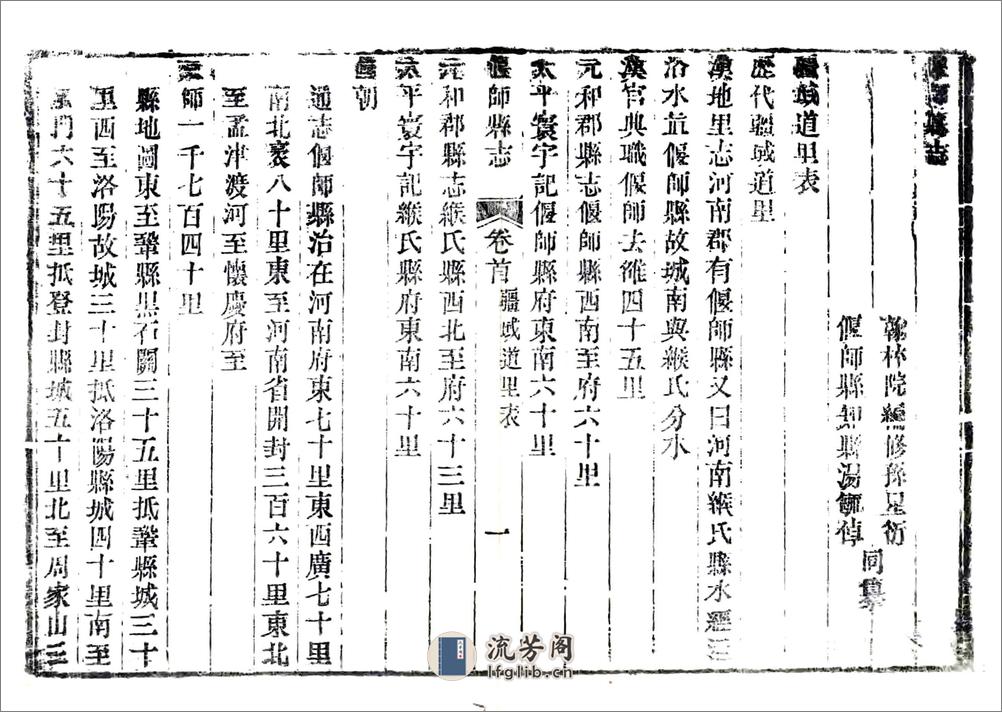 偃師縣志
翰林院編修孫星衍
偃師縣知縣湯毓倬
同纂
疆域道里表
歷代疆域道里
漢地里志河南郡有偃師縣又曰河南緱氏縣水經注
洛水並偃師縣故城南與緱氏分水
漢官典職偃師去雒四十五里
元和郡縣志偃師縣西南至府六十里
太平寰宇記偃師縣府東南六十里
偃師縣志 卷首 疆域道里表 一
元和郡縣志緱氏縣西北至府六十三里
太平寰宇記緱氏縣府東南六十里
朝
通志偃師縣治在河南府東七十里東西廣七十里
南北袤八十里東至河南省開封三百六十里東北
至孟津渡河至懷慶府至
京師一千七百四十里
縣地圖東至鞏縣黑石關三十五里抵鞏縣城三十
里西至洛陽故城三十里抵洛陽縣城四十里南至
門六十五里抵登封縣城五十里北至周家山三
流芳阁
lfglib.cn